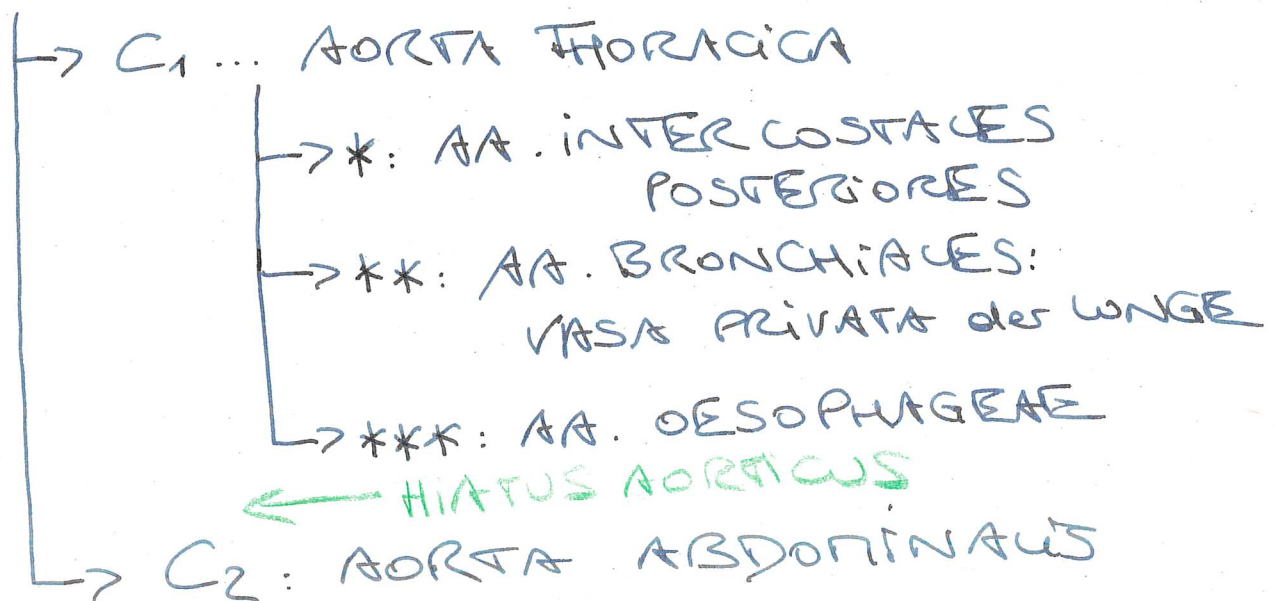 → C₁ ... AORTA THORACiCA
→ *: AA. iNTERCOSTALES
POSTERiORES
→ **: AA. BRONCHiALES:
VASA PRiVATA der LUNGE
→ ***: AA. OESOPHAGEAE
← HiATUS AORTiCUS
→ C₂: AORTA ABDOMiNALiS